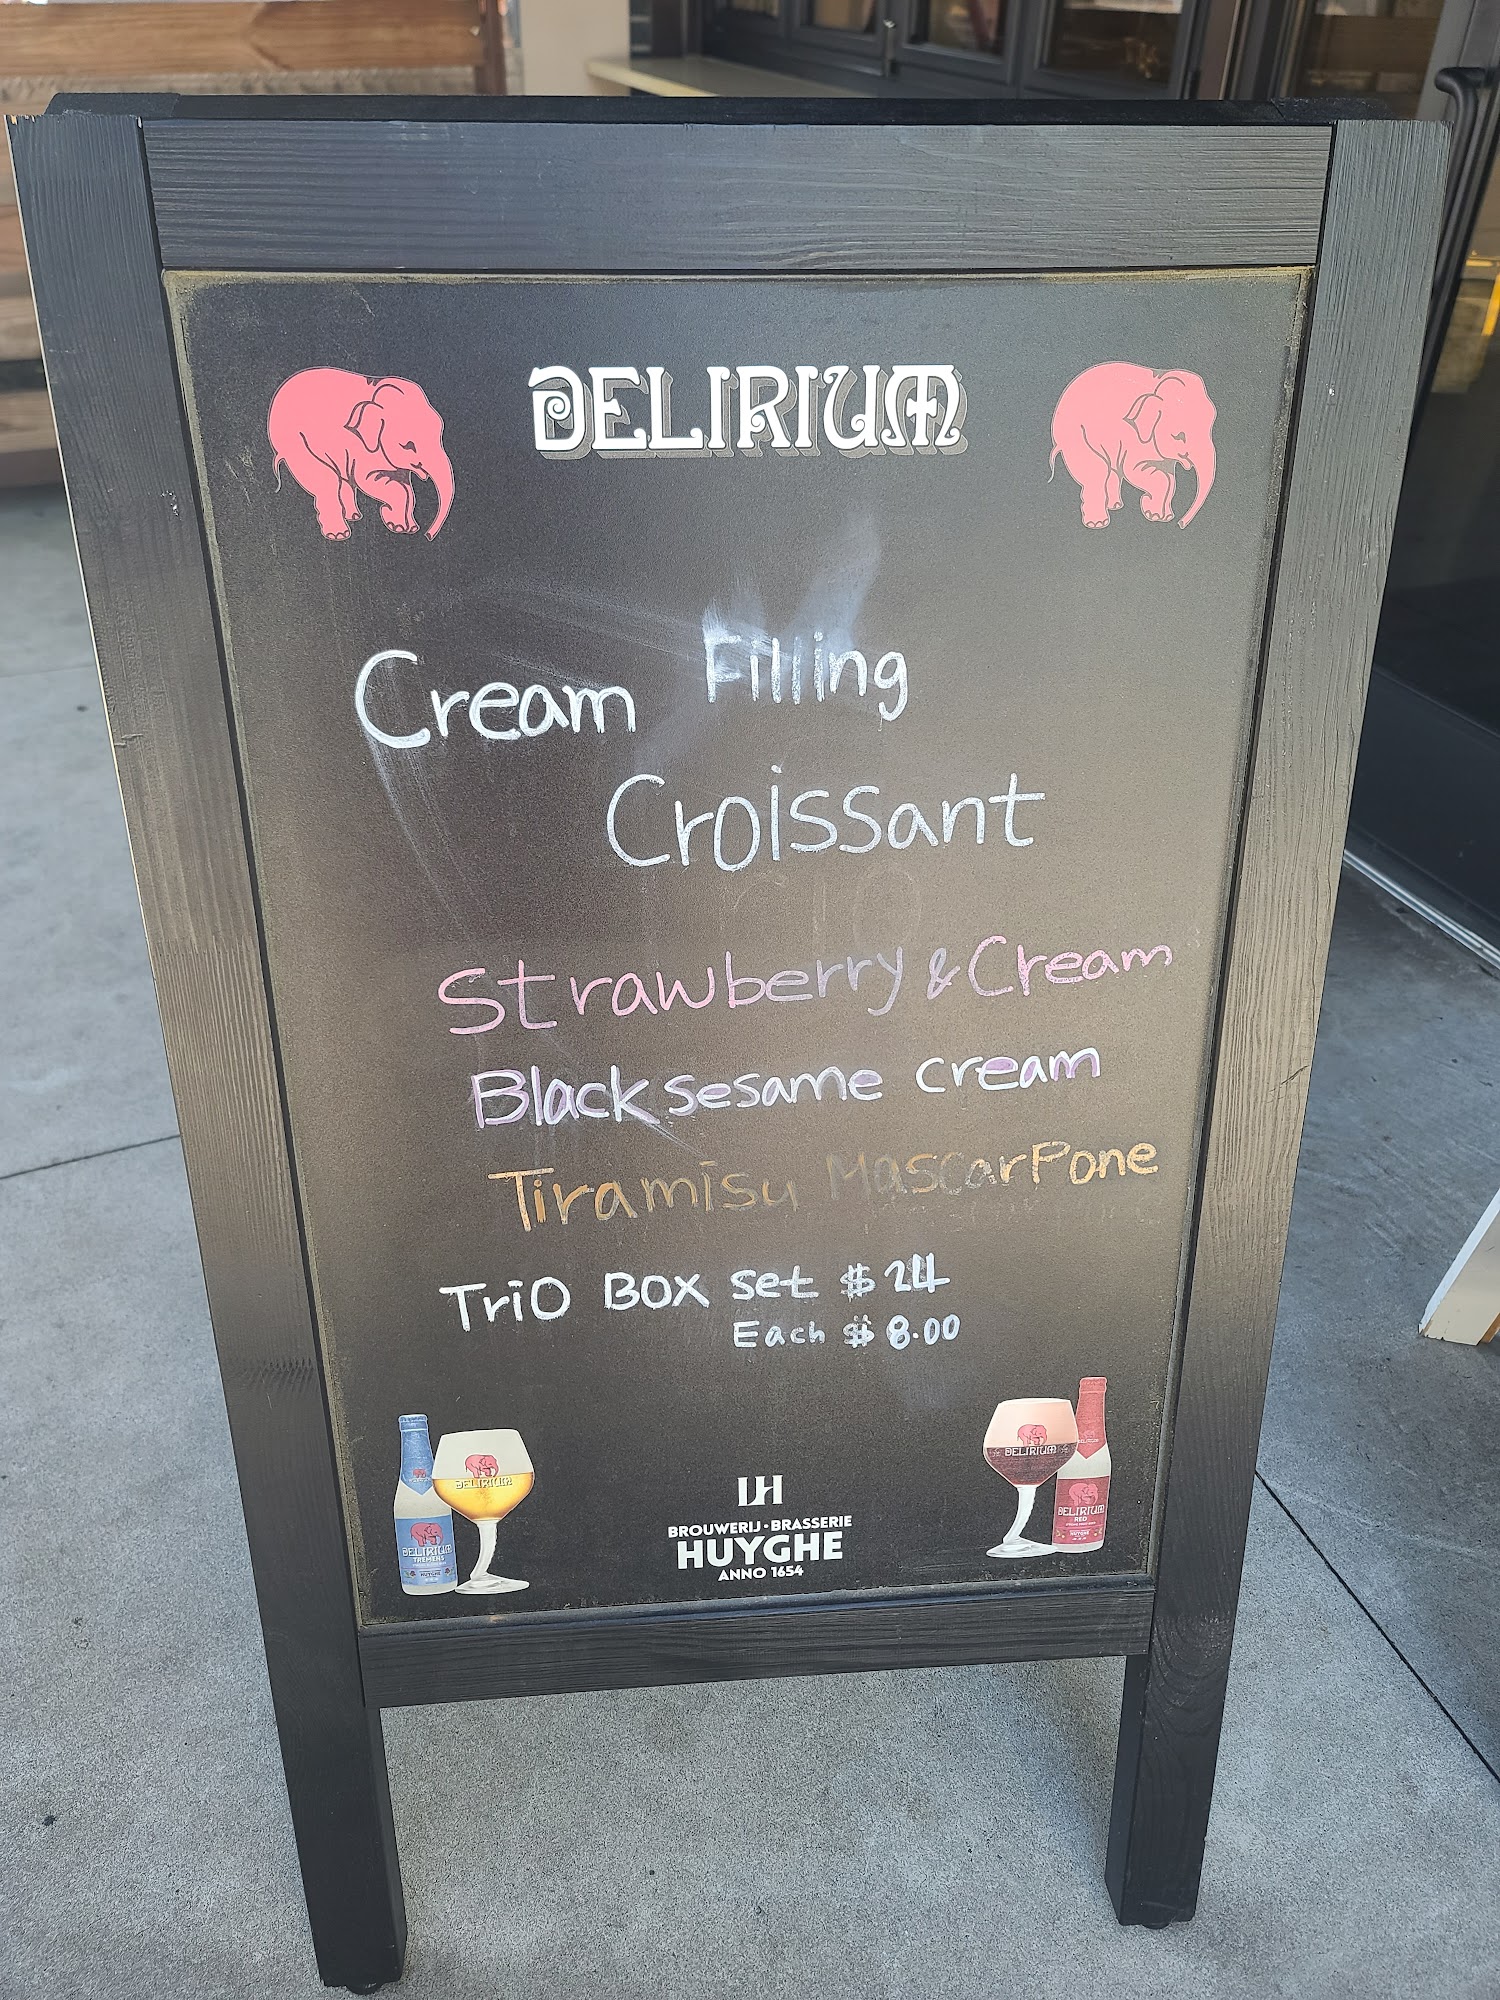 DELIRIUM
Cream Filling
Croissant
Strawberry & Cream
Black sesame cream
Tiramisu MascarPone
TriO BOX set $24
Each $8.00
DELIRIUM
DELIRIUM
TREMENS
HUYGHE
DELIRIUM
DELIRIUM
RED
HUYGHE
LH
BROUWERIJ · BRASSERIE
HUYGHE
ANNO 1654